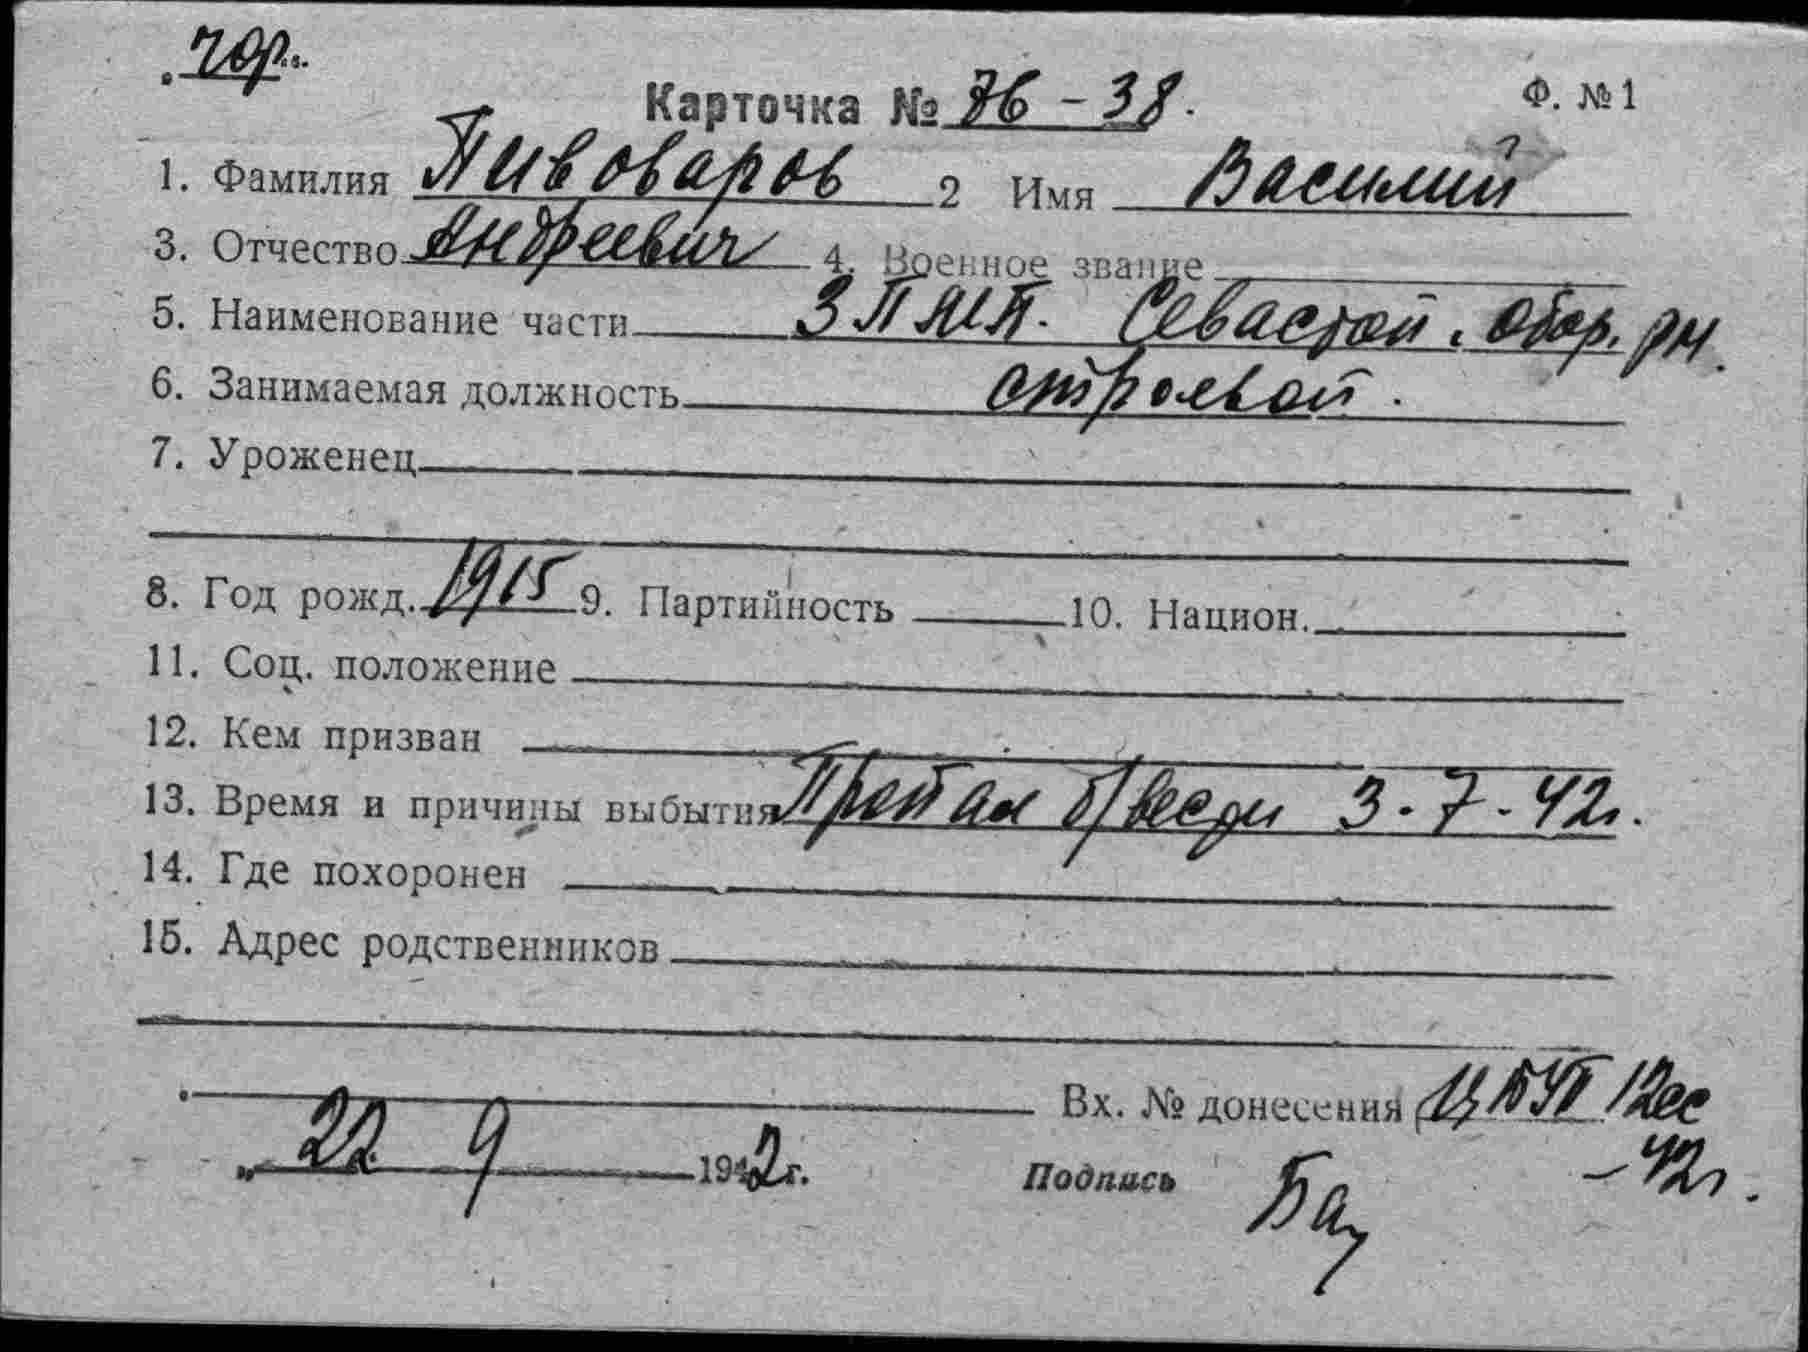 Чор.
Карточка № 76-38. Ф. №1
1. Фамилия Пивоваров 2 Имя Василий
3. Отчество Андреевич 4. Военное звание
5. Наименование части 3 П Севастоп. обор. рн.
6. Занимаемая должность строевой.
7. Уроженец
8. Год рожд. 1915 9. Партийность 10. Национ.
11. Соц. положение
12. Кем призван
13. Время и причины выбытия Пропал б/вести 3-7-42г.
14. Где похоронен
15. Адрес родственников
Вх. № донесения 12сс
-42г.
„ 22 9 1942г.
Подпись Ба